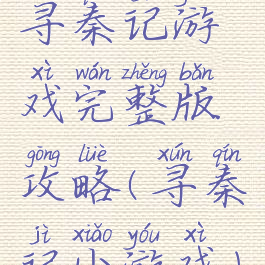 寻秦记游
xì wán zhěng bǎn
戏完整版
gōng lüè xún qín
攻略(寻秦
jì xiǎo yóu xì
记小游戏)